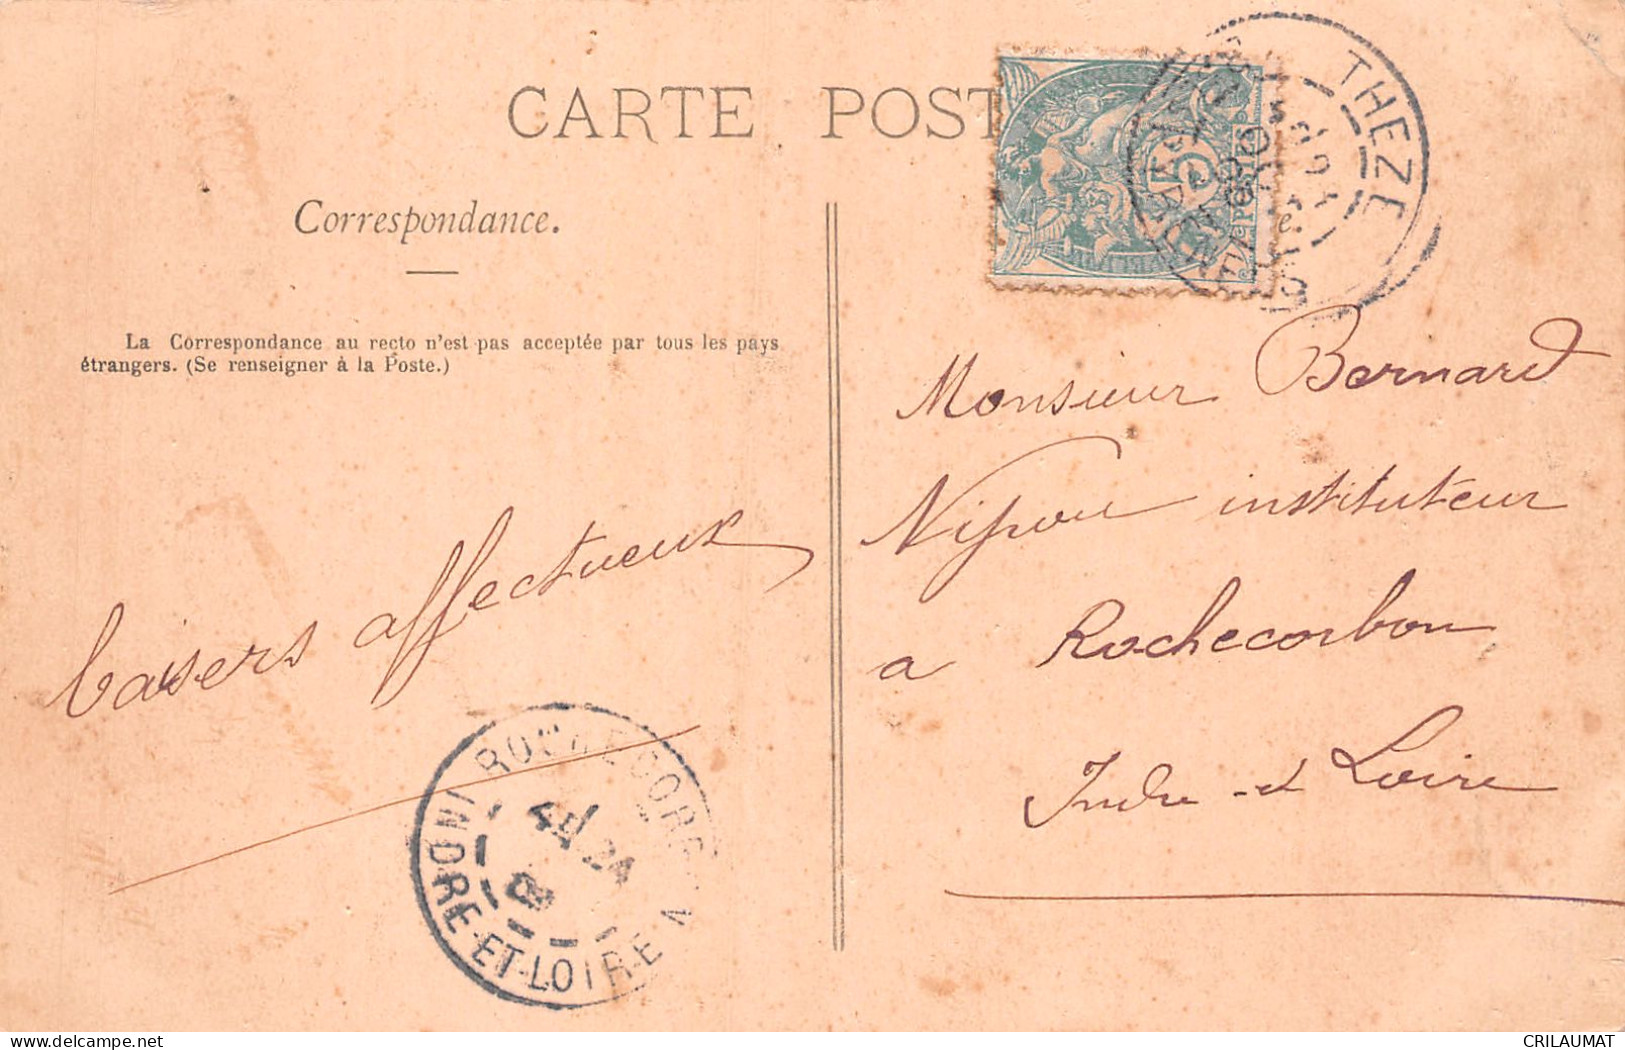 CARTE POST
Correspondance.
La Correspondance au recto n'est pas acceptée par tous les pays
étrangers. (Se renseigner à la Poste.)
THEZE
Monsieur Bernard
instituteur
a Rochecorbon
Indre et Loire
baisers affectueux
ROCHECORB
INDRE-ET-LOIRE
delcampe.net
CRILAUMAT